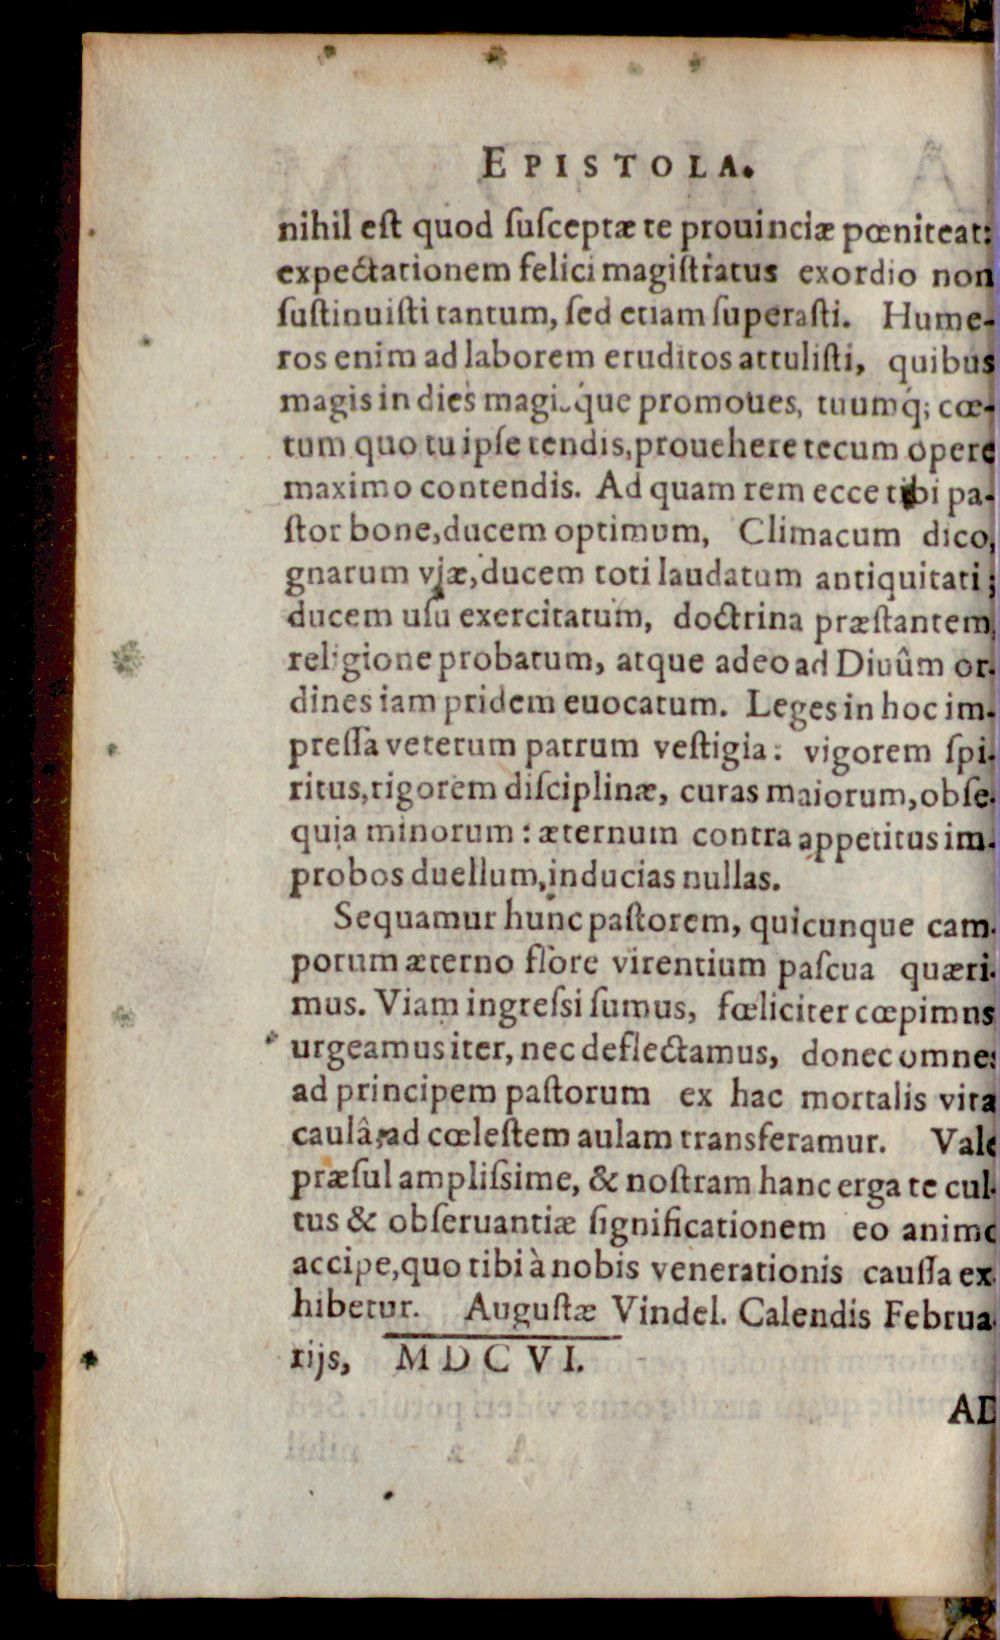 EPISTOLA.
nihil eſt quod ſuſceptæ te prouinciæ pœniteat:
expectationem felici magiſtratus exordio non
ſuſtinuiſti tantum, ſed etiam ſuperaſti. Hume-
ros enim ad laborem eruditos attuliſti, quibus
magis in dies magisq́ue promoues, tuumq́; cœ-
tum quo tu ipſe tendis, prouehere tecum opere
maximo contendis. Ad quam rem ecce tibi pa-
ſtor bone, ducem optimum, Climacum dico,
gnarum viæ, ducem toti laudatum antiquitati;
ducem uſu exercitatum, doctrina præſtantem,
religione probatum, atque adeo ad Diuûm or-
dines iam pridem euocatum. Leges in hoc im-
preſſa veterum patrum veſtigia: vigorem ſpi-
ritus, rigorem diſciplinæ, curas maiorum, obſe-
quia minorum: æternum contra appetitus im-
probos duellum, inducias nullas.
Sequamur hunc paſtorem, quicunque cam-
porum æterno flore virentium paſcua quæri-
mus. Viam ingreſsi ſumus, fœliciter cœpimns
urgeamus iter, nec deflectamus, donec omnes
ad principem paſtorum ex hac mortalis vita
caulâ, ad cœleſtem aulam transferamur. Vale
præſul ampliſsime, & noſtram hanc erga te cul-
tus & obſeruantiæ ſignificationem eo animo
accipe, quo tibi à nobis venerationis cauſſa ex-
hibetur. Auguſtæ Vindel. Calendis Februa-
rijs, MDCVI.
AD